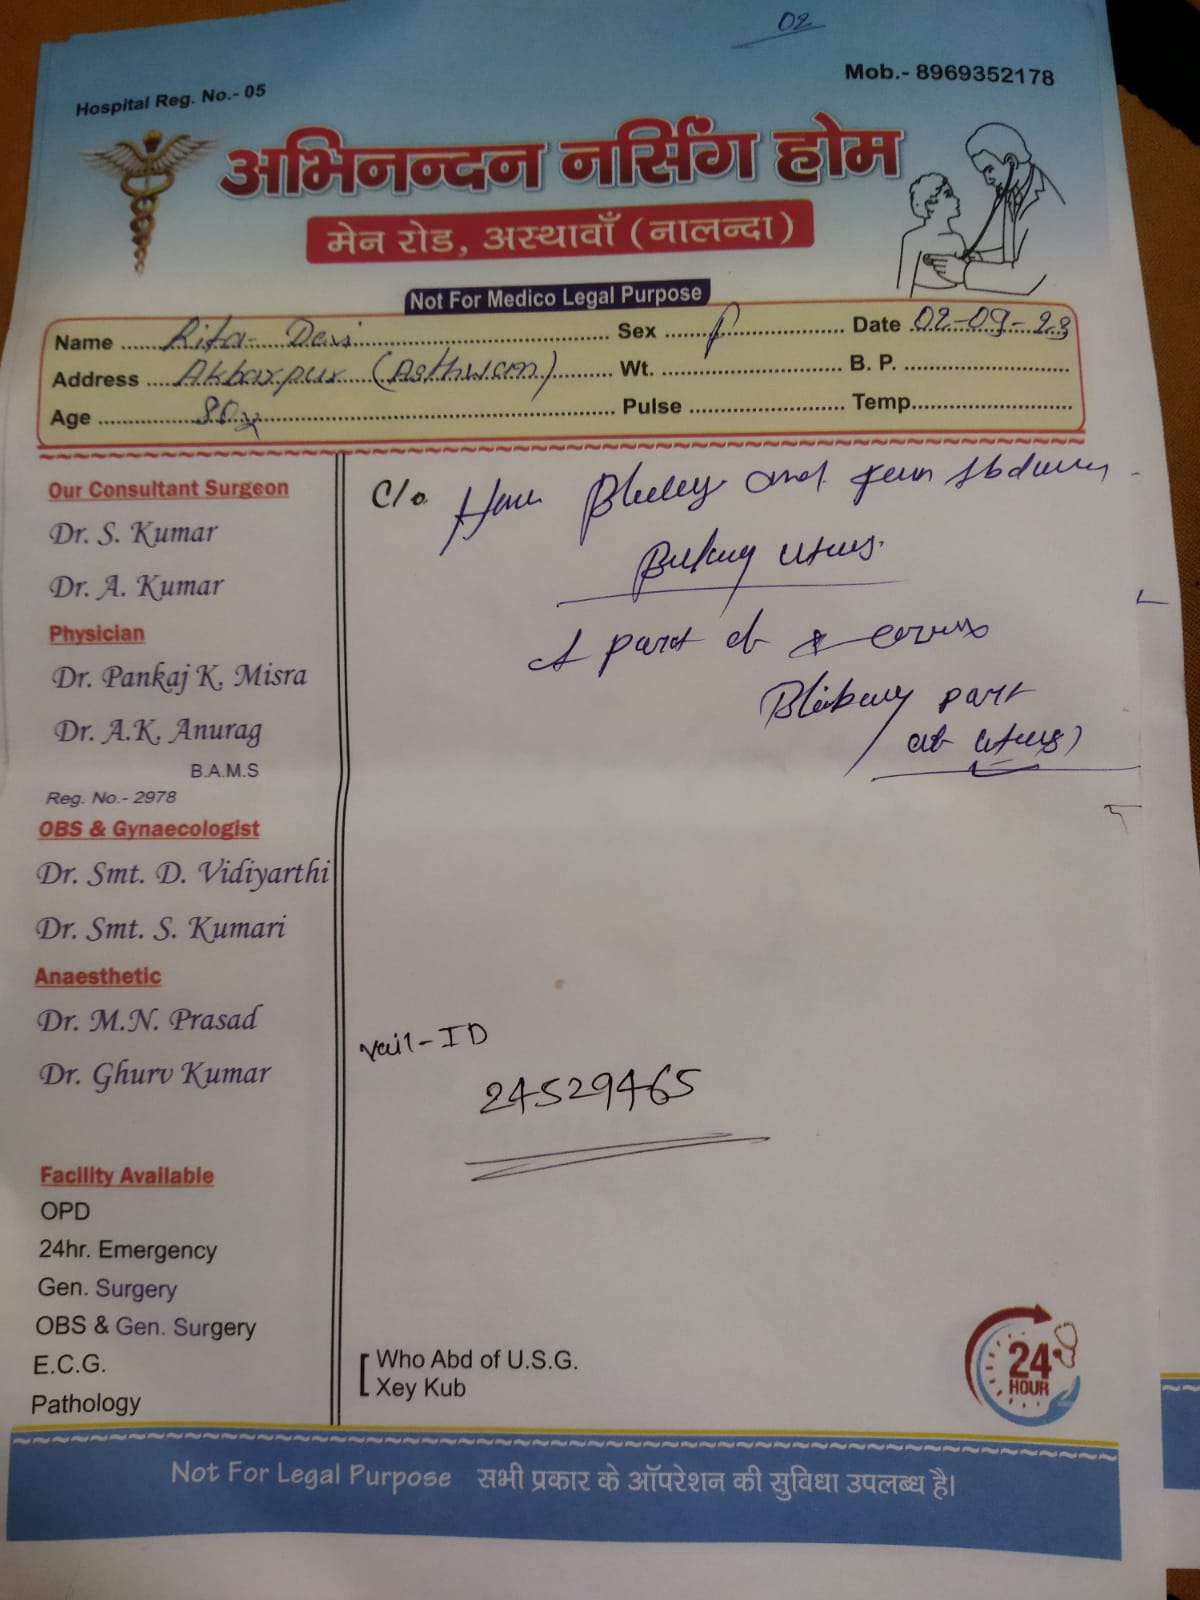 02
Hospital Reg. No.- 05
Mob.- 8969352178
अभिनन्दन नर्सिंग होम
मेन रोड, अस्थावाँ (नालन्दा)
Not For Medico Legal Purpose
Name Rita Devi Sex F Date 02-09-23
Address Akbarpur (Asthwan) Wt. B. P.
Age 80y Pulse Temp.
Our Consultant Surgeon
Dr. S. Kumar
Dr. A. Kumar
Physician
Dr. Pankaj K. Misra
Dr. A.K. Anurag
B.A.M.S
Reg. No.- 2978
OBS & Gynaecologist
Dr. Smt. D. Vidiyarthi
Dr. Smt. S. Kumari
Anaesthetic
Dr. M.N. Prasad
Dr. Ghurv Kumar
Facility Available
OPD
24hr. Emergency
Gen. Surgery
OBS & Gen. Surgery
E.C.G.
Pathology
C/o and
uterus.
part
part
uterus
vail-ID
24529465
Who Abd of U.S.G.
Xey Kub
24
HOUR
Not For Legal Purpose सभी प्रकार के ऑपरेशन की सुविधा उपलब्ध है।